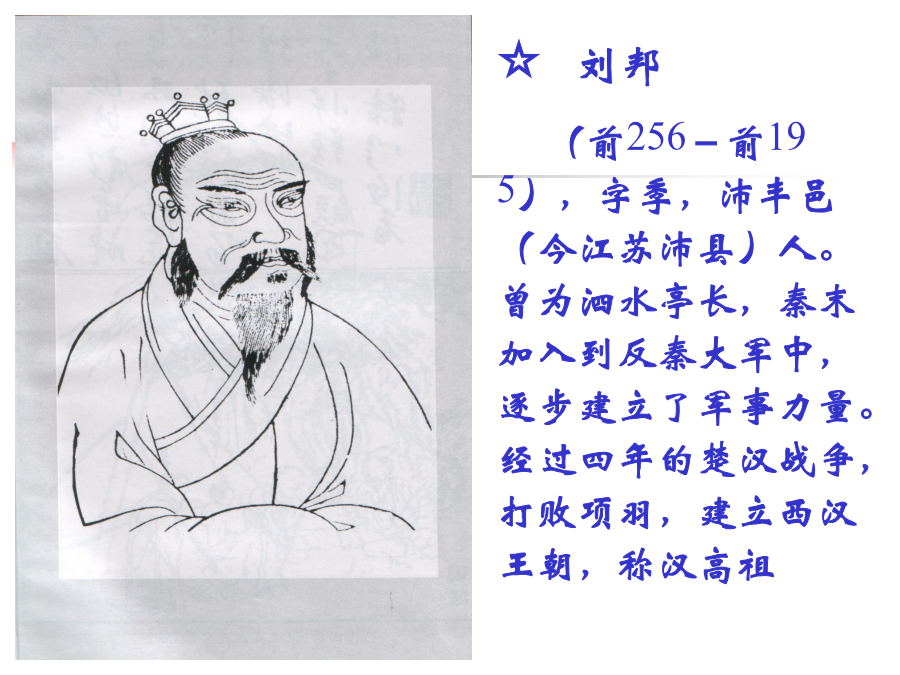 ☆ 刘邦
（前256－前19
5），字季，沛丰邑
（今江苏沛县）人。
曾为泗水亭长，秦末
加入到反秦大军中，
逐步建立了军事力量。
经过四年的楚汉战争，
打败项羽，建立西汉
王朝，称汉高祖